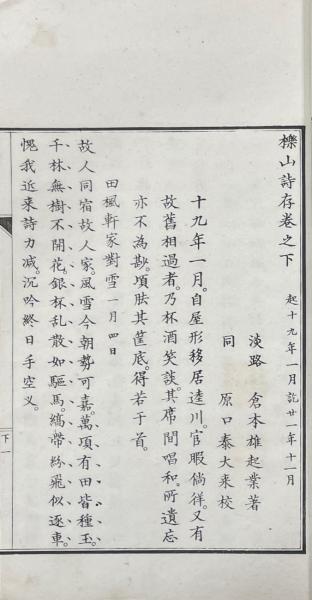 櫟山詩存卷之下　起十九年一月訖廿一年十一月
淡路　倉本雄起業著
同　原口泰大来校
十九年一月。自屋形移居逵川。官暇倘徉。又有
故舊相過者。乃杯酒笑談。其席間唱和。所遺忘
亦不為尠。頃胠其篋底。得若干首。
田楓軒家對雪一月四日
故人同宿故人家。風雪今朝勢可嘉。萬頃有田皆種玉。
千林無樹不開花。銀杯乱散如驅馬。縞帶紛飛似逐車。
愧我近来詩力减。沉吟終日手空叉。
下一